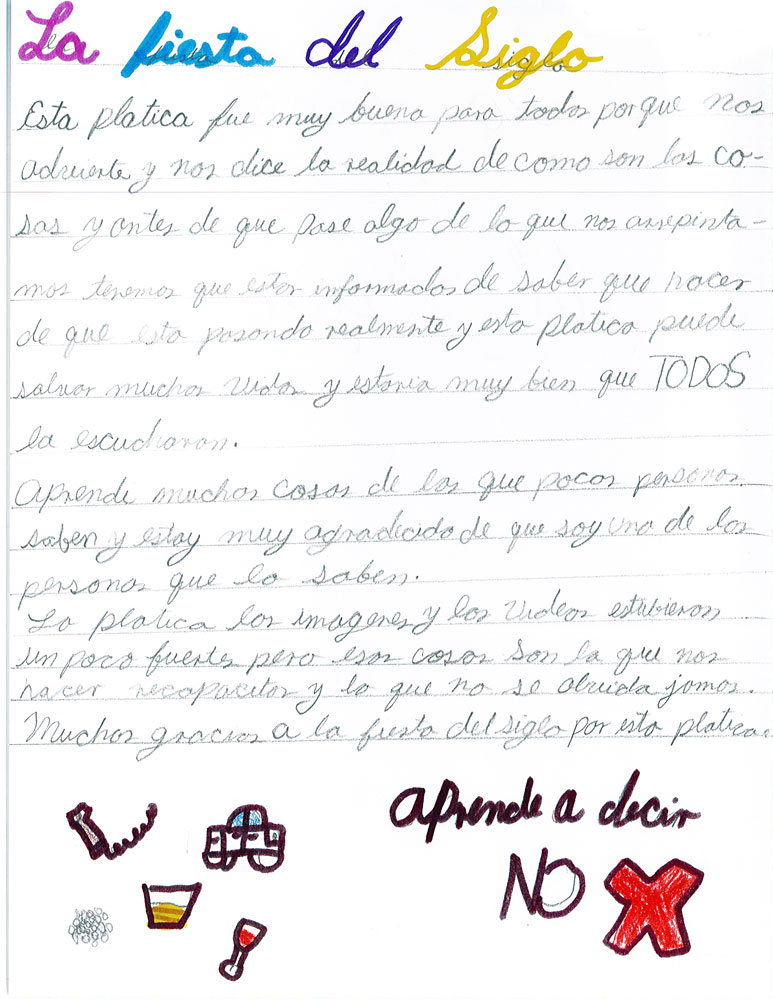 La fiesta del Siglo
Esta platica fue muy buena para todos porque nos
advierte y nos dice la realidad de como son las co-
sas y antes de que pase algo de lo que nos arrepinta-
mos tenemos que estar informados de saber que hacer
de que esta pasando realmente y esta platica puede
salvar muchas vidas y estaria muy bien que TODOS
la escucharan.
Aprende muchas cosas de las que pocas personas
saben y estoy muy agradecido de que soy una de las
personas que lo saben.
La platica las imagenes y los videos estubieron
un poco fuertes pero esas cosas son la que nos
hacer recapacitar y lo que no se olvida jamas.
Muchas gracias a la fiesta del siglo por esta platica.
aprende a decir
NO